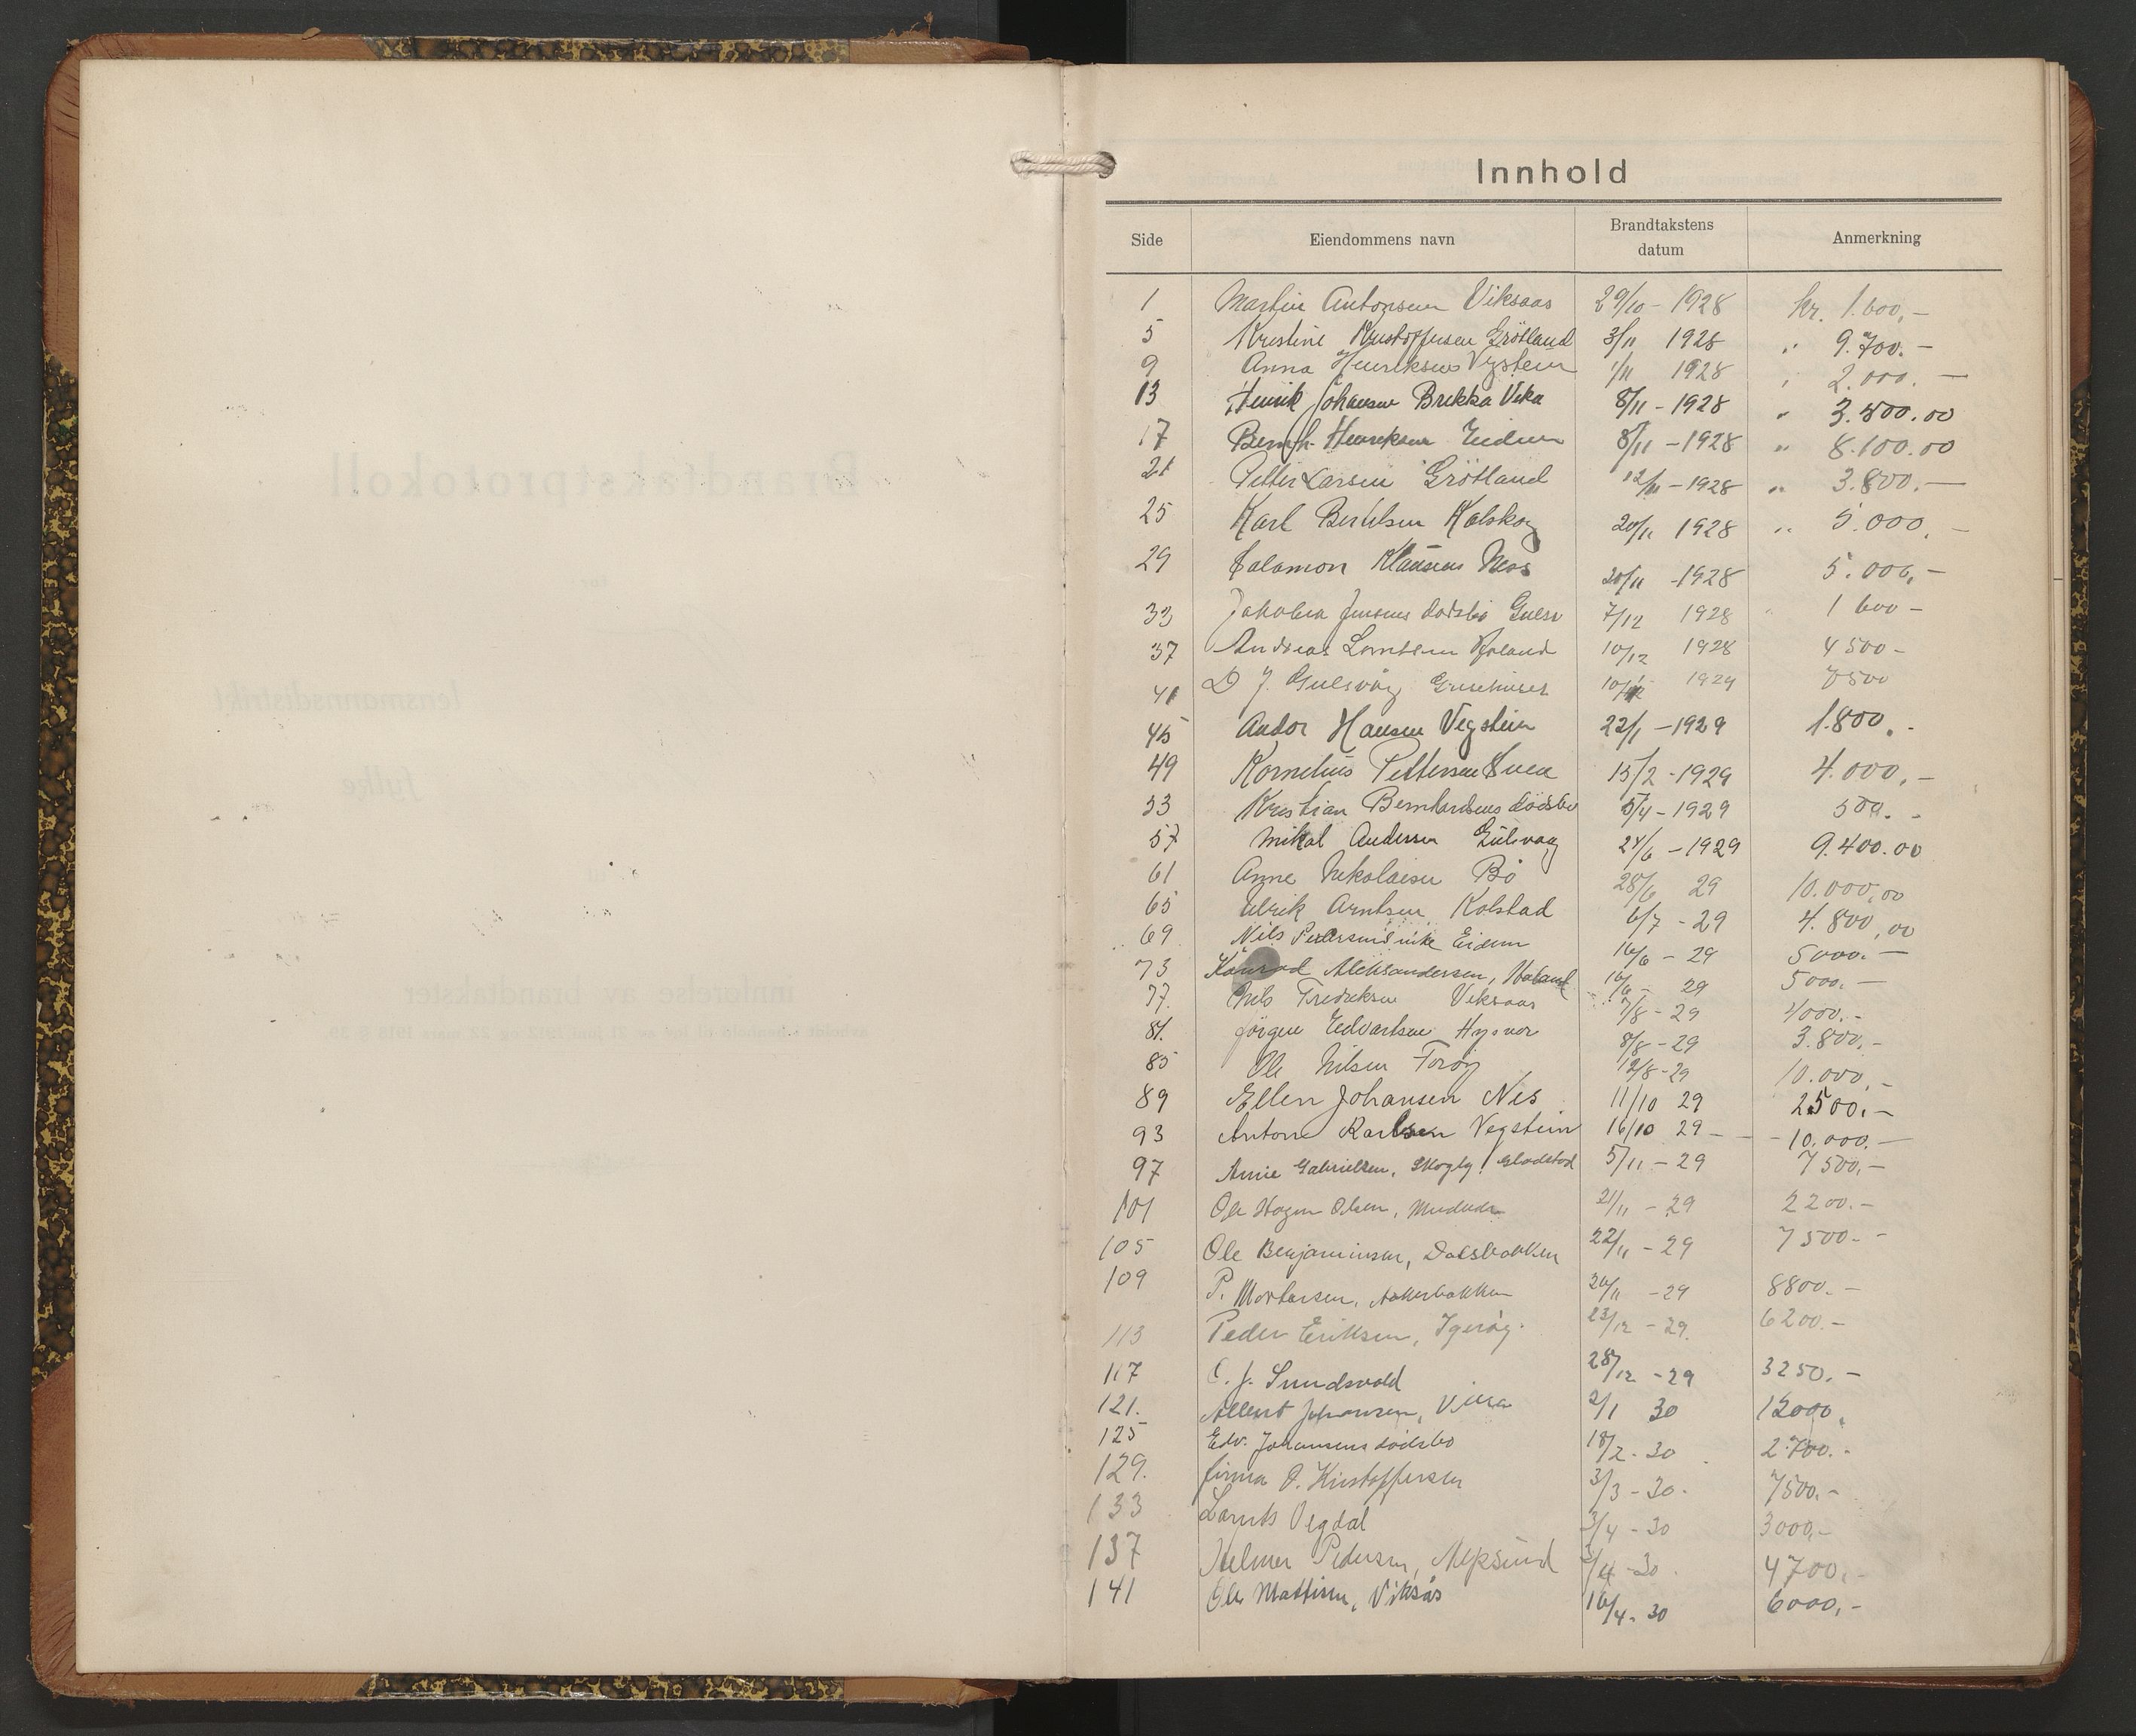 Innhold
Side Eiendommens navn Brandtakstens datum Anmerkning
1 Martin Antonsen Viksaas 29/10 - 1928 kr. 1.600,-
5 Kristine Kristoffersen Grötland 3/11 1928 " 9.700.-
9 Anna Henriksens Vegstein 1/11 1928 " 2.000.-
13 Henrik Johansen Brekka Vika 8/11 - 1928 " 3.500.00
17 Bernh. Henriksen Eidem 8/11 - 1928 " 8.100.00
21 Petter Larsen Grötland 12/11 - 1928 " 3.800.-
25 Karl Bertilsen Kalskog 20/11 1928 " 5.000,-
29 Salamon Klausens Nes 20/11 - 1928 5.000,-
33 Jakobea Jensens dödsbo Gulsv 7/12 1928 " 1 600 -
37 Andreas Lorntsen 10/12 1928 4 500 -
41 D J. Gulsvåg 10/12 1929 7500
45 Andor Hansen Vegstein 22/1 - 1929 1.800.-
49 Kornelius Pettersen Svea 15/2 - 1929 4.000,-
53 Kristian Bernhardsens dödsbo 5/4 - 1929 500.-
57 Mikal Andersen Gulsvaag 24/6 - 1929 9.400.00
61 Anne Nikolaisen Bö 28/6 29 10.000,00
65 Ulrik Arntsen Kolstad 6/7 - 29 4.800,00
69 Nils Pedersens enke Eidem 16/6 - 29 5000.-
73 Konrad Aleksandersen, Haland 16/6 - 29 5000.-
77. Nils Fredriksen Viksaas 7/8 - 29 4000.-
81. Jörgen Edvartsen Hysvær 8/8 - 29 3.800,-
85 Ole Nilsen Toröy 12/8 - 29 10.000,-
89 Ellen Johansen Nes 11/10 29 2500.-
93 Antone Karlsen Vegstein 16/10 29 - 10.000.-
97 Annie Gabrielsen, Skogly, Gladstad 5/11 - 29 7500,-
101 Ole Hagen Olsen, 21/11 - 29 2200.-
105 Ole Benjaminsen, Dalsbakken 22/11 - 29 7500.-
109 P. Mortensen, Akerbakken 26/11 - 29 8800.-
113 Peder Eriksen, Igeröy. 23/12 - 29. 6200.-
117 C. J. Sundsvold 28/12 - 29 3250.-
121. Albert Johansen, Vika 2/1 30 12000,
125 Edv. Johansens dödsbo 18/2 - 30 2.700.-
129. firma O. Kristoffersen 3/3 - 30. 7500.-
133 Lornts Vegdal 3/4 - 30 3000,-
137 Helmer Pedersen, Repsund 3/4 - 30. 4700.-
141 Ole Mattisen, Viksås 16/4 - 30 6000,-